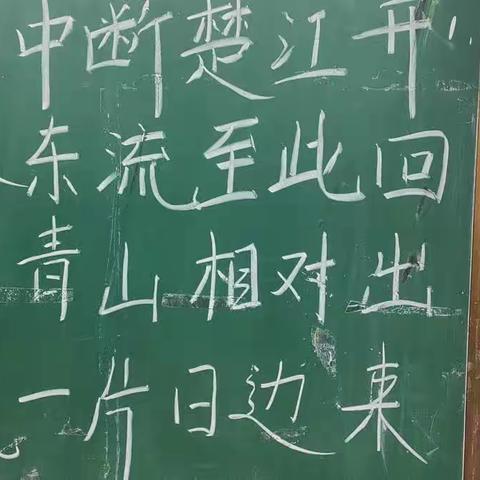 中断楚江开
东流至此回
青山相对出
一片日边来